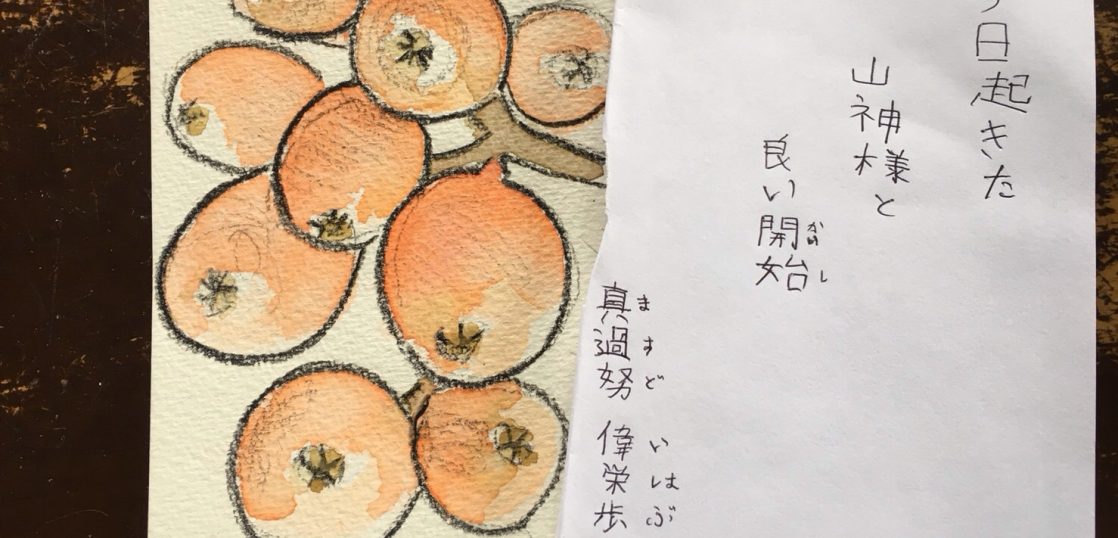 日起きた
山神様と
良い開始
かいし
真過努 偉栄歩
ますど いはぶ